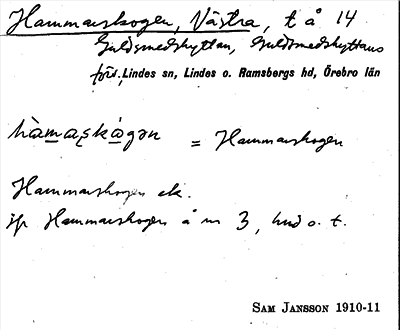 Hammarskogen, Västra, t å 14
Guldsmedshyttan, Guldsmedshyttans
förs, Lindes sn, Lindes o. Ramsbergs hd, Örebro län
hàmaskágən = Hammarskogen
Hammarskogen ek.
jfr Hammarskogen å nr 3, hnd o. t.
SAM JANSSON 1910-11